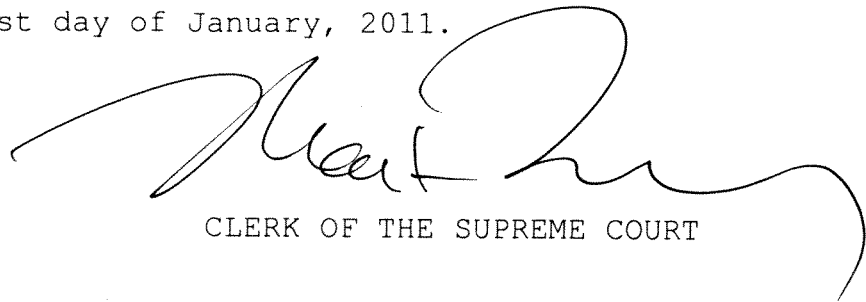 st day of January, 2011.
CLERK OF THE SUPREME COURT